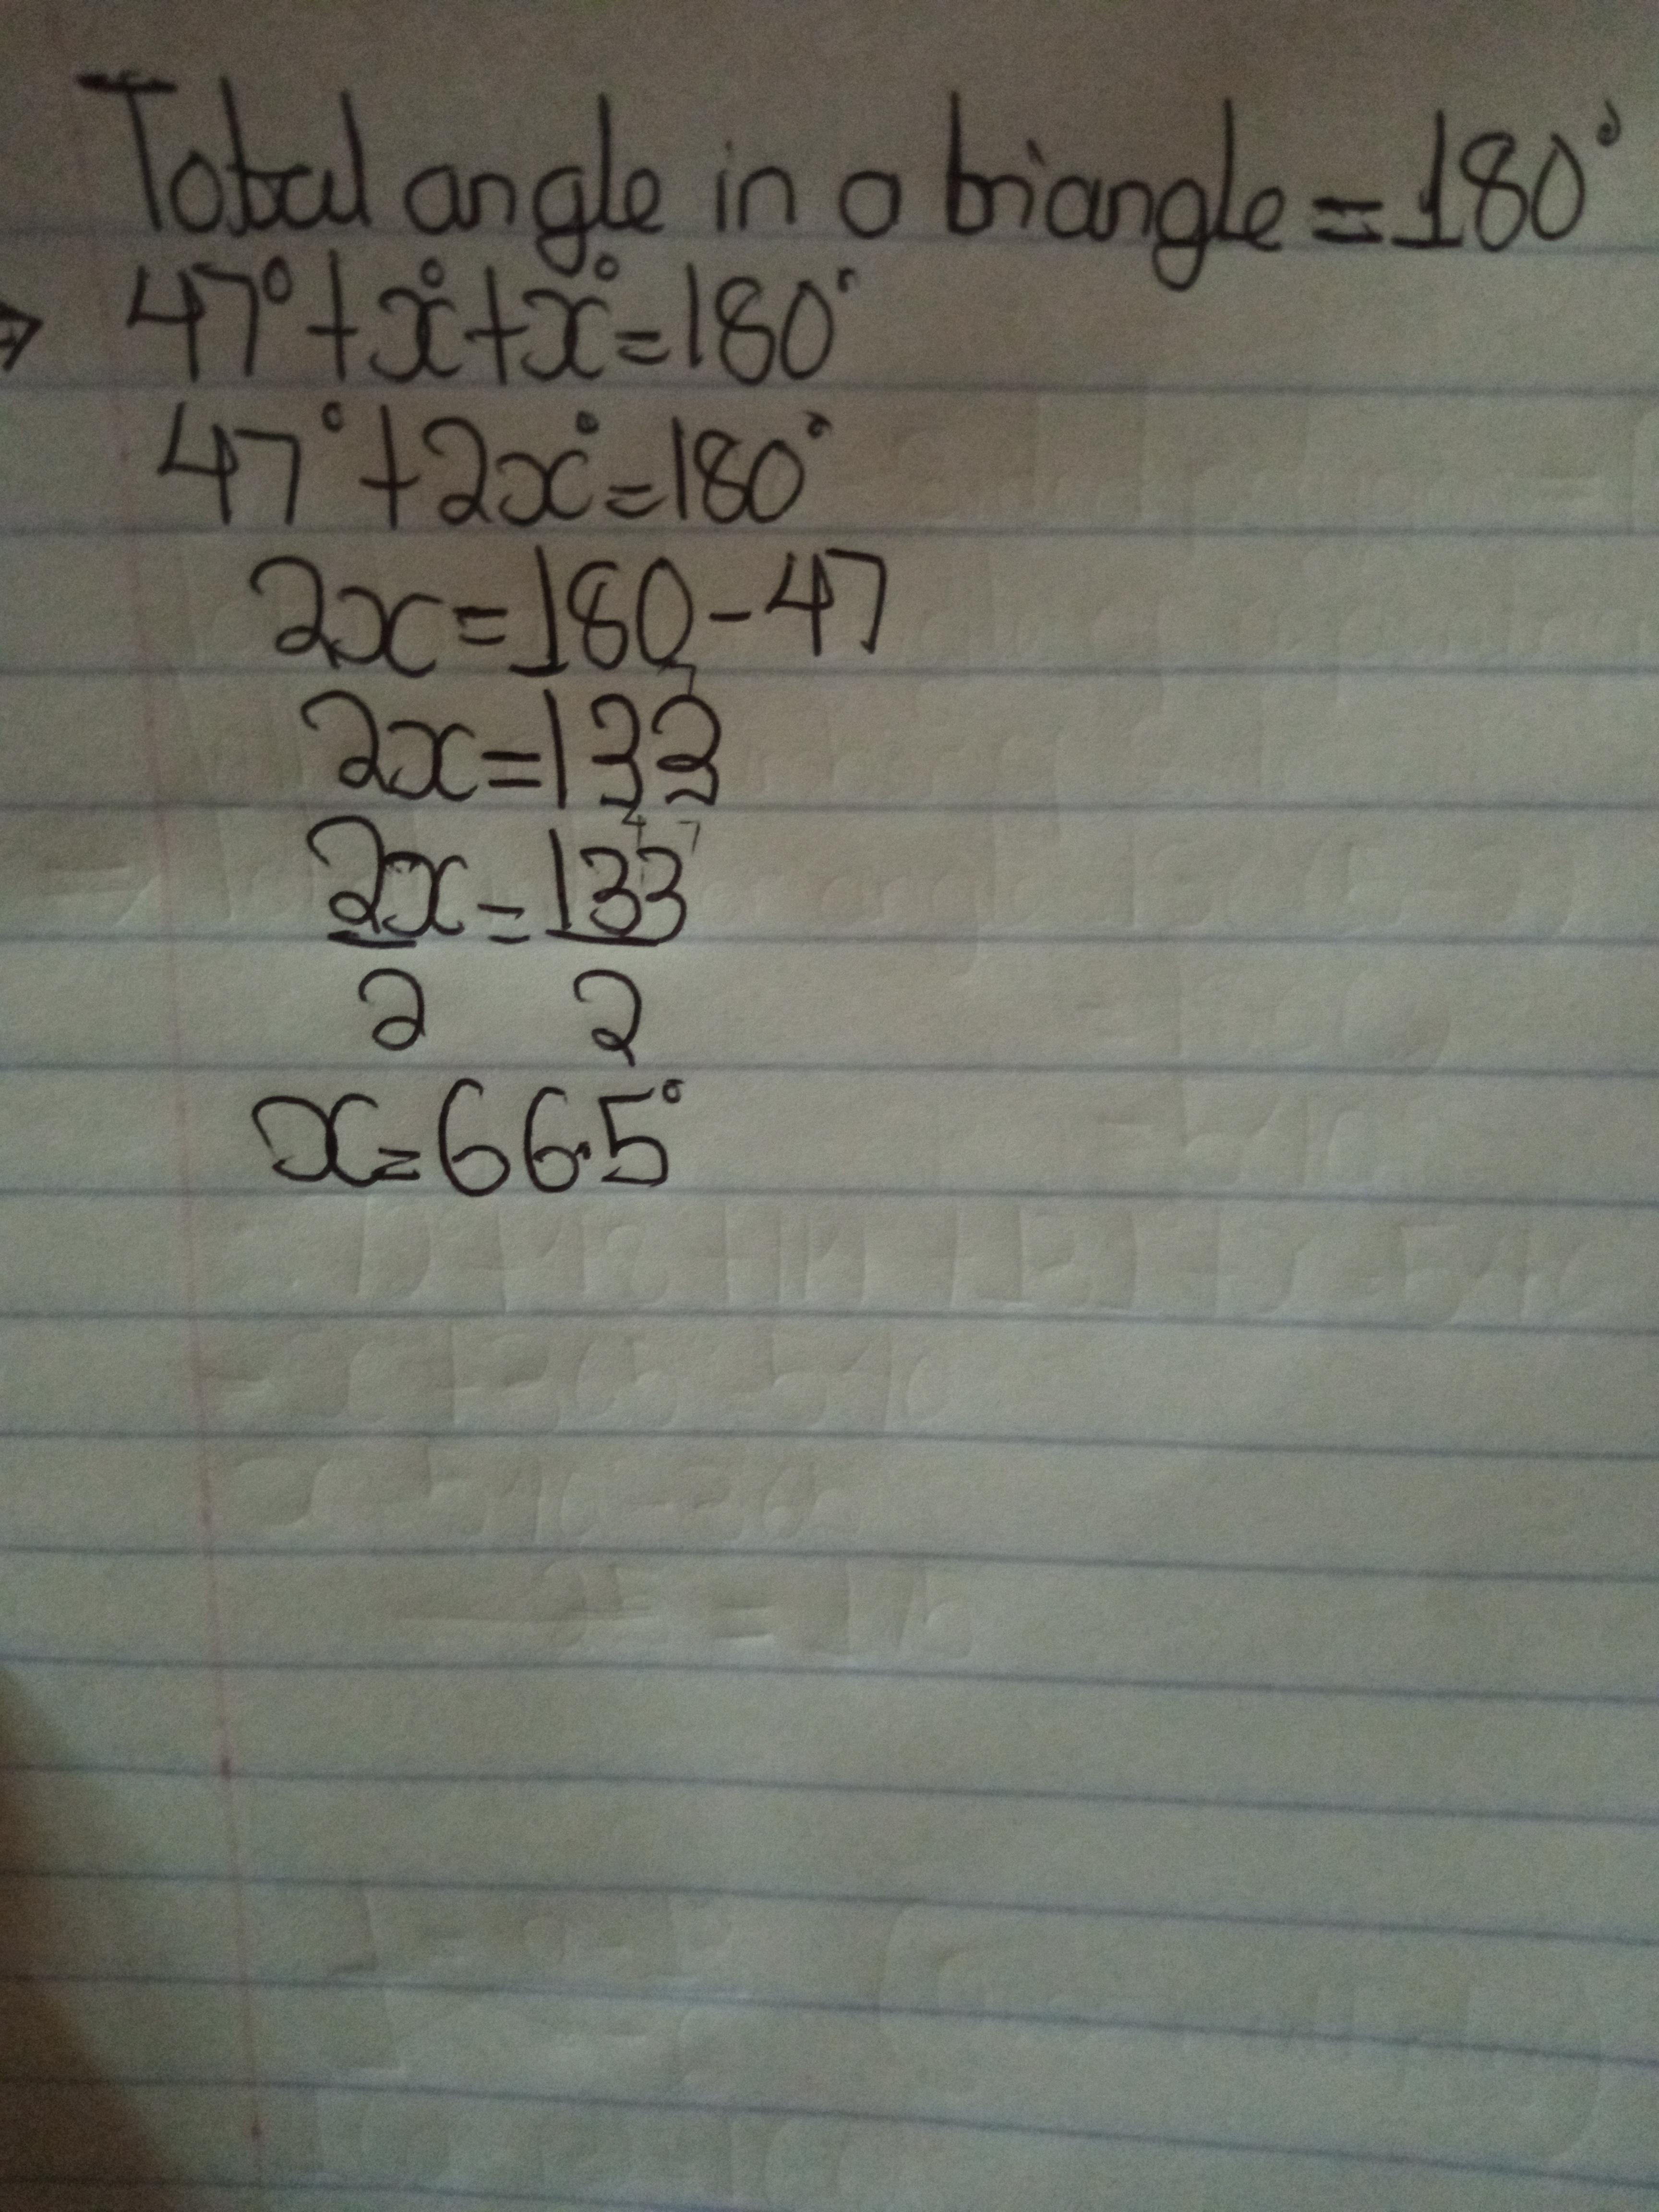 Total angle in a triangle = 180°
⇒ 47° + x° + x° = 180°
47° + 2x° = 180°
2x = 180 - 47
2x = 133
2x = 133
2 2
x = 66.5°